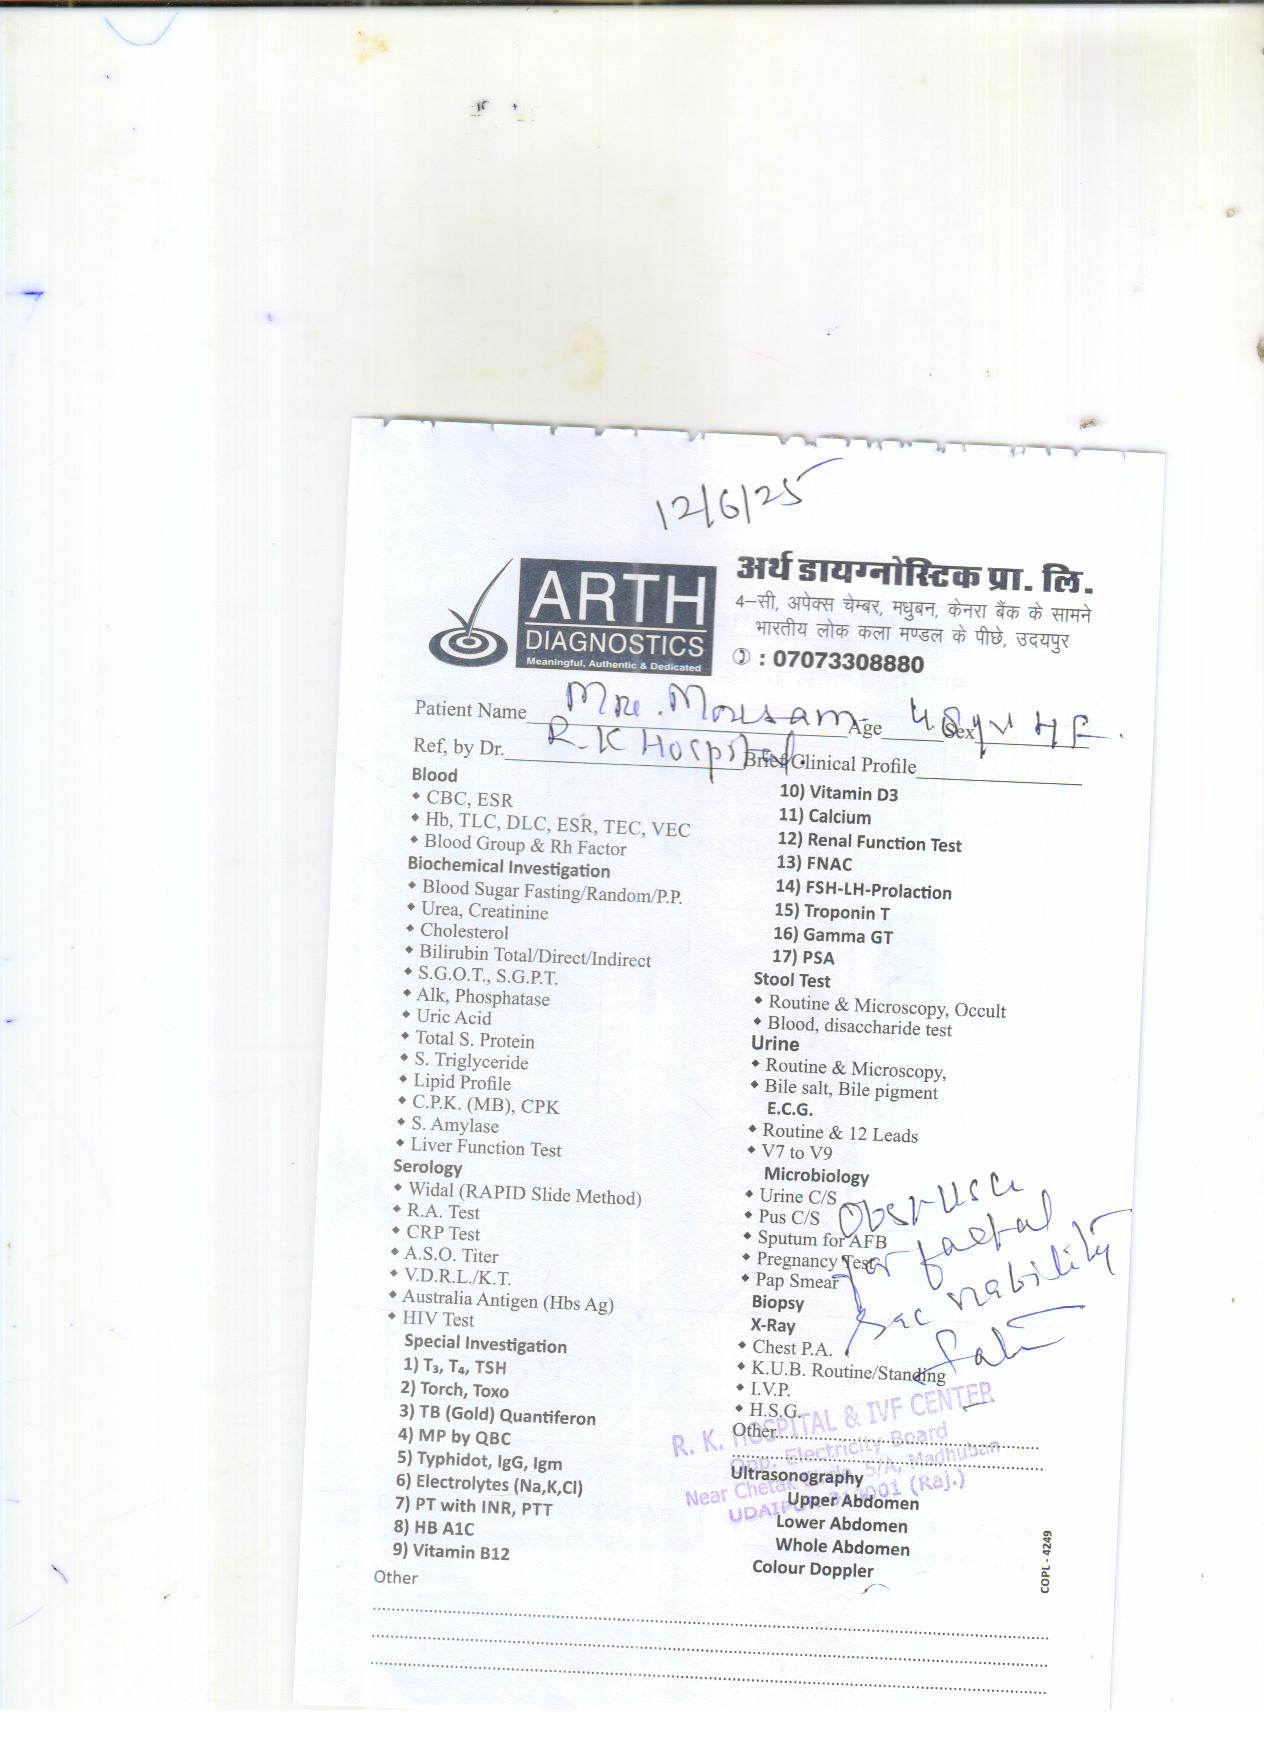 12/6/25
ARTH
DIAGNOSTICS
Meaningful, Authentic & Dedicated
अर्थ डायग्नोस्टिक प्रा. लि.
4–सी, अपेक्स चेम्बर, मधुबन, केनरा बैंक के सामने
भारतीय लोक कला मण्डल के पीछे, उदयपुर
: 07073308880
Patient Name Mrs. Mousam Age Sex F.
Ref, by Dr. R.K Hospital. Brief Clinical Profile
Blood
CBC, ESR
Hb, TLC, DLC, ESR, TEC, VEC
Blood Group & Rh Factor
Biochemical Investigation
Blood Sugar Fasting/Random/P.P.
Urea, Creatinine
Cholesterol
Bilirubin Total/Direct/Indirect
S.G.O.T., S.G.P.T.
Alk, Phosphatase
Uric Acid
Total S. Protein
S. Triglyceride
Lipid Profile
C.P.K. (MB), CPK
S. Amylase
Liver Function Test
Serology
Widal (RAPID Slide Method)
R.A. Test
CRP Test
A.S.O. Titer
V.D.R.L./K.T.
Australia Antigen (Hbs Ag)
HIV Test
Special Investigation
1) T₃, T₄, TSH
2) Torch, Toxo
3) TB (Gold) Quantiferon
4) MP by QBC
5) Typhidot, IgG, Igm
6) Electrolytes (Na,K,Cl)
7) PT with INR, PTT
8) HB A1C
9) Vitamin B12
Other
10) Vitamin D3
11) Calcium
12) Renal Function Test
13) FNAC
14) FSH-LH-Prolaction
15) Troponin T
16) Gamma GT
17) PSA
Stool Test
Routine & Microscopy, Occult
Blood, disaccharide test
Urine
Routine & Microscopy,
Bile salt, Bile pigment
E.C.G.
Routine & 12 Leads
V7 to V9
Microbiology
Urine C/S
Pus C/S
Sputum for AFB
Pregnancy Test
Pap Smear
Biopsy
X-Ray
Chest P.A.
K.U.B. Routine/Standing
I.V.P.
H.S.G.
Other
Ultrasonography
Upper Abdomen
Lower Abdomen
Whole Abdomen
Colour Doppler
for faetal
sac viability
R. K. HOSPITAL & IVF CENTER
Opp. Electricity Board
Near Chetak Circle, 5/A, Madhuban
UDAIPUR-313001 (Raj.)
COPL - 4249